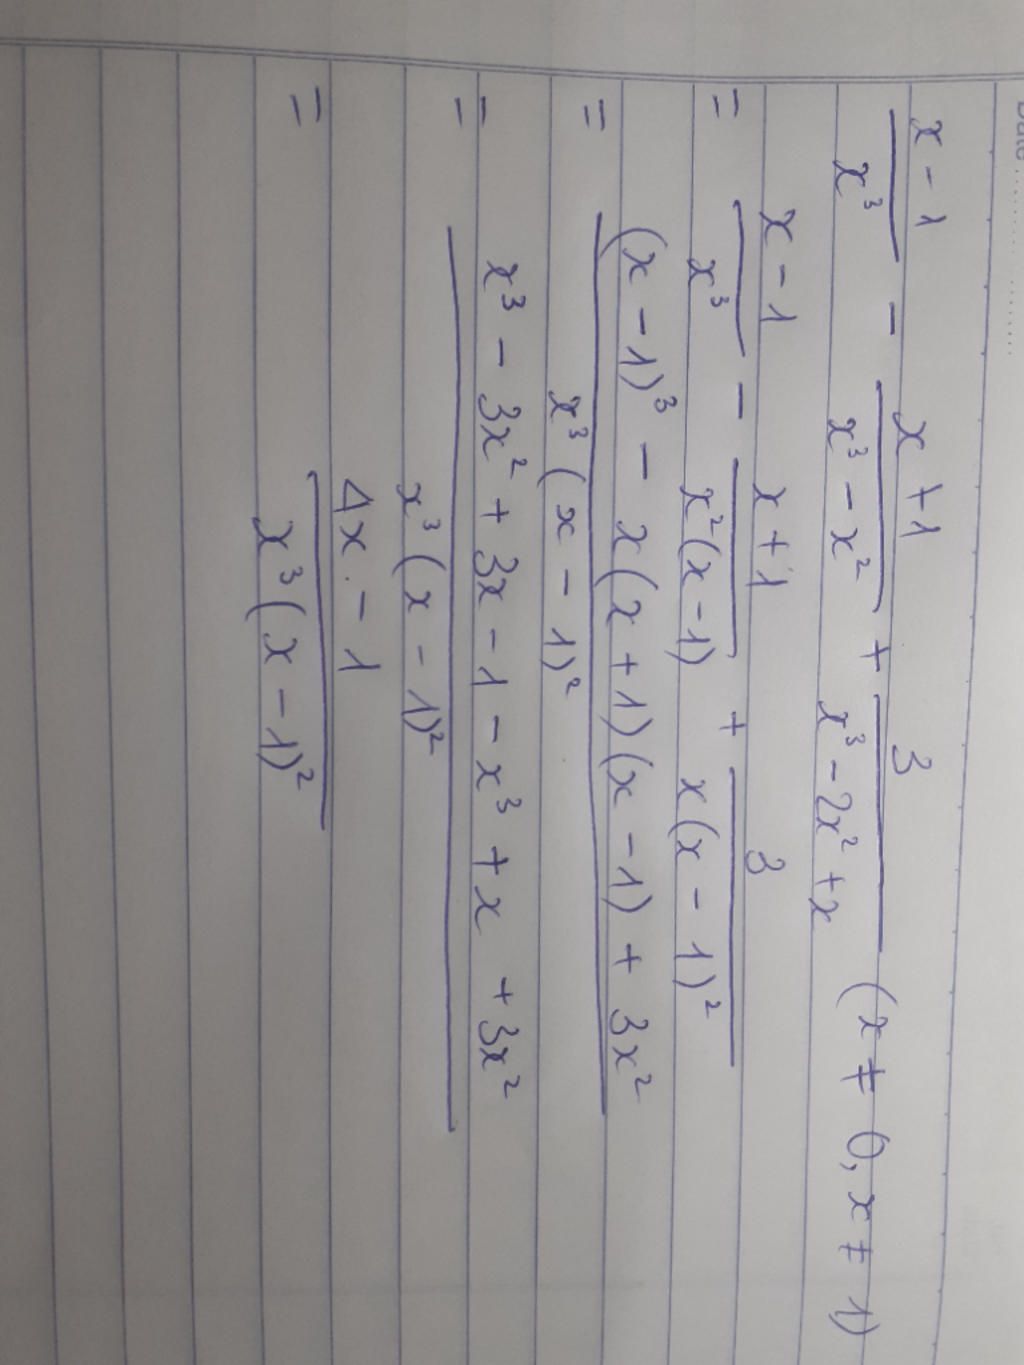 Date ..................
x - 1 / x³ - x + 1 / x³ - x² + 3 / x³ - 2x² + x (x ≠ 0, x ≠ 1)
= x - 1 / x³ - x + 1 / x²(x - 1) + 3 / x(x - 1)²
= (x - 1)³ - x(x + 1)(x - 1) + 3x² / x³(x - 1)²
= x³ - 3x² + 3x - 1 - x³ + x + 3x² / x³(x - 1)²
= 4x - 1 / x³(x - 1)²